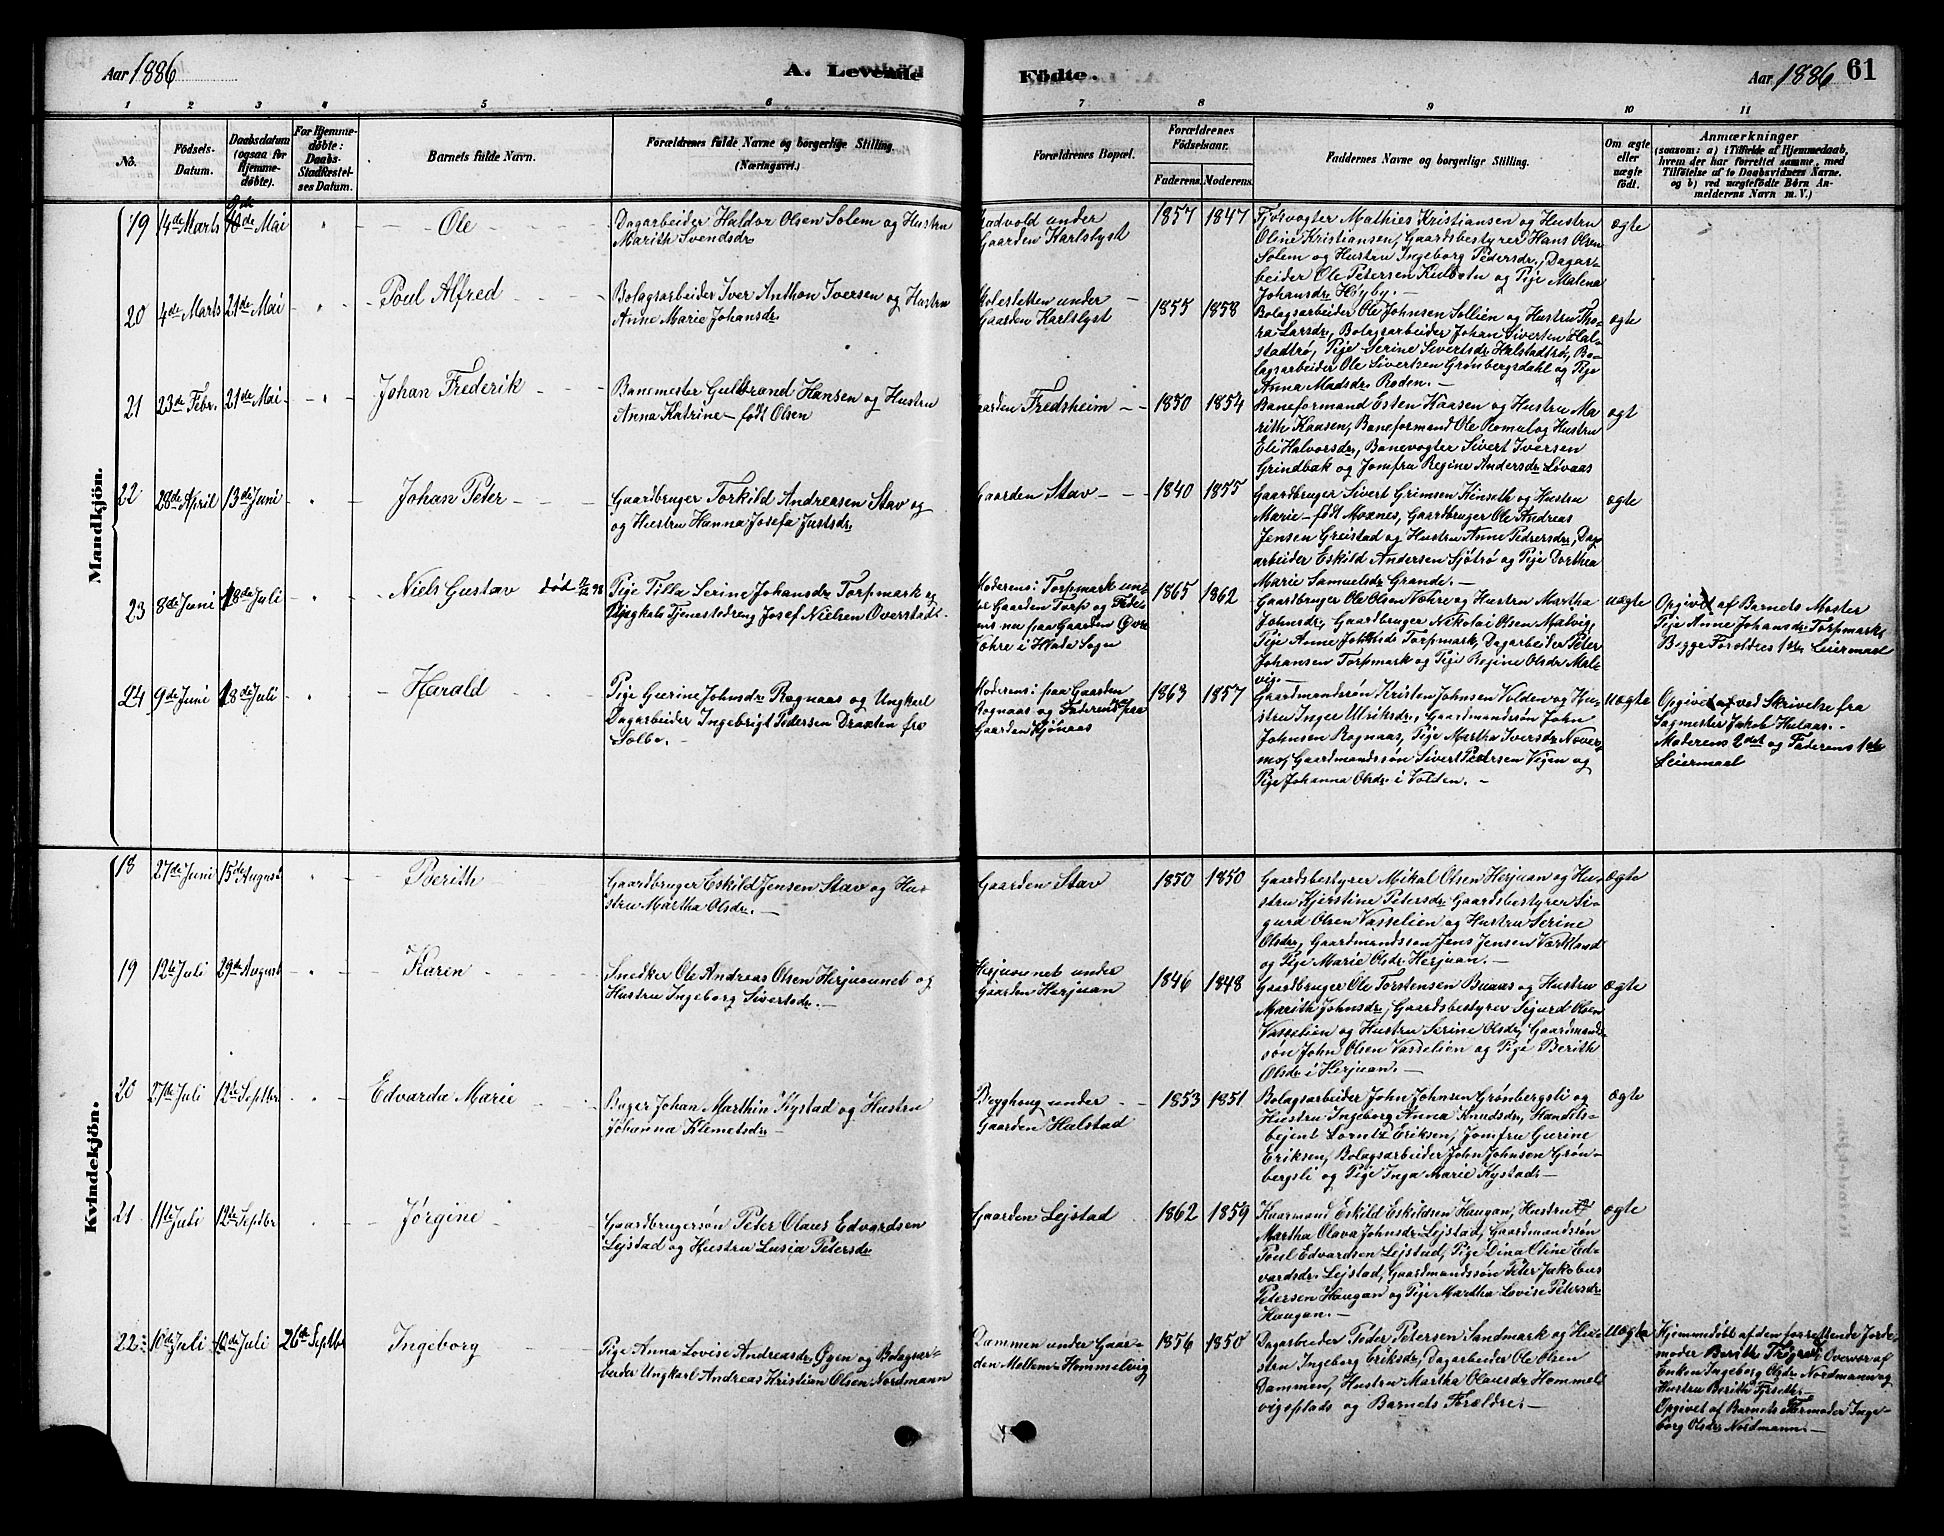 Aar 1886
A. Levende
Födte.
Aar 1886 61
1 2 3 4 5 6 7 8 9 10 11
No.
Födsels-
Datum.
Daabsdatum
(ogsaa for
Hjemme-
døbte).
For Hjemme-
døbte:
Daabs-
Stadfæstel-
ses Datum.
Barnets fulde Navn.
Forældrenes fulde Navne og borgerlige Stilling.
(Næringsvei.)
Forældrenes Bopæl.
Forældrenes
Födselsaar.
Faderens. Moderens.
Faddernes Navne og borgerlige Stilling.
Om ægte
eller
uægte
født.
Anmærkninger
(saasom: a) i Tilfælde af Hjemmedaab,
hvem der har forrettet samme, med
Tilføielse af to Daabsvidners Navne.
og b) ved uægtefødte Børn An-
melderens Navn m. V.)
Mandkjön.
19 14de Marts 10de Mai Ole
Dagarbeider Haldor Olsen Solem og Hustru
Marith Svendsdr
Rudvold under
Gaarden Karlslyst
1857 1847
Fyrvogter Mathies Kristiansen og Hustru
Oline Kristiansen, Gaardsbestyrer Hans Olsen
Solem og Hustru Ingeborg Pedersdr., Dagar-
beider Ole Petersen Kulbotn og Pige Malena
Johansdr. Høyby.
ægte
20 4de Marts 21de Mai Poul Alfred
Bolagsarbeider Iver Anthon Iversen og Hustru
Anne Marie Johansdr
Molesletten under
Gaarden Karlslyst
1855 1858
Bolagsarbeider Ole Johnsen Sollien og Hustru Tho-
ra Larsdr., Bolagsarbeider Johan Sivertsen Hal-
stadtrø, Pige Serine Sivertsdr. Halstadtrø, Bo-
lagsarbeider Ole Sivertsen Grønbergsdahl og Pige
Anna Madsdr. Roden.
ægte
21 23de Febr. 21de Mai Johan Frederik
Banemester Gulbrand Hansen og Hustru
Anna Katrine - født Olsen
Gaarden Fredsheim
1850 1854
Baneformand Esten Kaasen og Hustru Ma-
rith Kaasen, Baneformand Ole Romul og Hustru
Eli Halvorsdr., Banevogter Sivert Iversen
Grindbak og Jomfru Regine Andersdr. Løvaas
ægt
22 28de April 13de Juni Johan Peter
Gaardbruger Torkild Andreasen Stav og
og Hustru Hanna Josefa Justsdr.
Gaarden Stav
1840 1855
Gaardbruger Sivert Grimsen Hinseth og Hustru
Marie - født Moxnes, Gaardbruger Ole Andreas
Jensen Greistad og Hustru Anne Pedersdr., Dag-
arbeider Eskild Andersen Sjøtrø og Pige Dorthea
Marie Samuelsdr. Grande.
ægte
23 8de Juni 18de Juli Niels Gustav død 98
Pige Tilla Serine Johansdr. Torpmark og
Ungkarl Tjenestedreng Josef Nielsen Overstad.
Moderens: Torpmark un-
der Gaarden Torp og Fade-
rens nu paa Gaarden Øvre
Væhre i Hlade Sogn
1865 1862
Gaardbruger Ole Olsen Væhre og Hustru Martha
Johnsdr., Gaardbruger Nikolai Olsen Malvig,
Pige Anne Johansdr. Torpmark, Dagarbeider Peter
Johansen Torpmark og Pige Regine Olsdr. Mal-
vig.
uægte
Opgivet af Barnets Moster
Pige Anne Johansdr. Torpmark.
Begge Forældres 1ste Leiermaal
24 9de Juni 18de Juli Harald
Pige Gurine Johnsdr. Rognaas og Ungkarl
Dagarbeider Ingebrigt Pedersen Draxten fra
Selbo.
Moderens: paa Gaarden
Rognaas og Faderens paa
Gaarden Kjønaas
1863 1857
Gaardmandssøn Kristen Johnsen Volden og Hu-
stru Inger Ulriksdr., Gaardmandssøn John
Johnsen Rognaas, Pige Martha Iversdr. Nover-
mo, Gaardmandssøn Sivert Pedersen Vigen og
Pige Johanna Olsdr. i Volden.
uægte
Opgivet ved Skrivelse fra
Sagmester Jakob Hulaas.
Moderens 2det og Faderens 1ste
Leiermaal
Kvindekjön.
18 27de Juni 15de August Berith
Gaardbruger Eskild Jensen Stav og Hu-
stru Martha Olsdr.
Gaarden Stav
1850 1850
Gaardsbestyrer Mikal Olsen Herjuan og Hu-
stru Kjerstine Petersdr., Gaardsbestyrer Si-
gurd Olsen Vasselien og Hustru Serine
Olsdr., Gaardmandssøn Jens Jensen Værkland
og Pige Marie Olsdr. Herjuan.
ægte
19 12te Juli 29de August Karen
Snedker Ole Andreas Olsen Herjuaunet og
Hustru Ingeborg Sivertsdr.
Herjuaunet under
Gaarden Herjuan
1846 1848
Gaardbruger Ole Torstensen Buaas og Hustru
Marith Johnsdr., Gaardsbestyrer Sigurd Olsen
Vasselien og Hustru Serine Olsdr., Gaardmands-
søn John Olsen Vasselien og Pige Berith
Olsdr. i Herjuan.
ægte
20 27de Juli 12te Septbr Edvarda Marie
Bager Johan Marthin Kystad og Hustru
Johanna Klemetsdr
Bryghoug under
Gaarden Halstad
1853 1851
Bolagsarbeider John Johnsen Grønbergsli og
Hustru Ingeborg Anna Knudsdr., Handels-
betjent Lorntz Eriksen, Jomfru Gurine
Eriksen, Bolagsarbeider John Johnsen Grøn-
bergsli og Pige Inga Marie Kystad.
ægte
21 11te Juli 12te Septbr Jørgine
Gaardbrugersøn Peter Olaus Edvardsen
Lejstad og Hustru Lusia Petersdr
Gaarden Lejstad
1862 1859
Kaarmand Eskild Eskildsen Haugan, Hustru
Martha Olava Johnsdr. Lejstad, Gaardmandssøn
Poul Edvardsen Lejstad, Pige Dina Oline Ed-
vardsdr. Lejstad, Gaardmandssøn Peter Jakobus
Petersen Haugan og Pige Martha Lovise Petersdr.
Haugan.
ægte
22 10de Juli 10de Juli 26te Septbr Ingeborg
Pige Anna Lovise Andreasdr. Øyen og Bolagsar-
beider Ungkarl Andreas Kristian Olsen Nordmann
Dammen under Gaar-
den Mellem-Hommelvig
1856 1850
Dagarbeider Peder Petersen Sandmark og Hu-
stru Ingeborg Eriksdr., Dagarbeider Ole Olsen
Dammen, Hustru Martha Olausdr. Hommel-
vigsplads og Barnets Forældre.
uægte
Hjemmedøbt af den forrettende Jorde-
moder Berith Overvær af
Enken Ingeborg Olsdr. Nordmann og
Hustru Berith Fyrseth.
Opgivet af Barnets Farmoder Inge-
borg Olsdr. Nordmann.